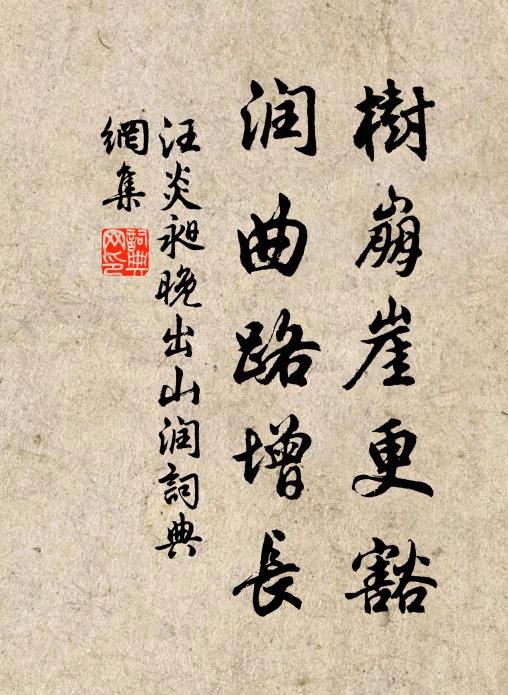 樹崩崖更豁
润曲路增長
汪炎昶晚出山润詞典
網集
詞典
网印